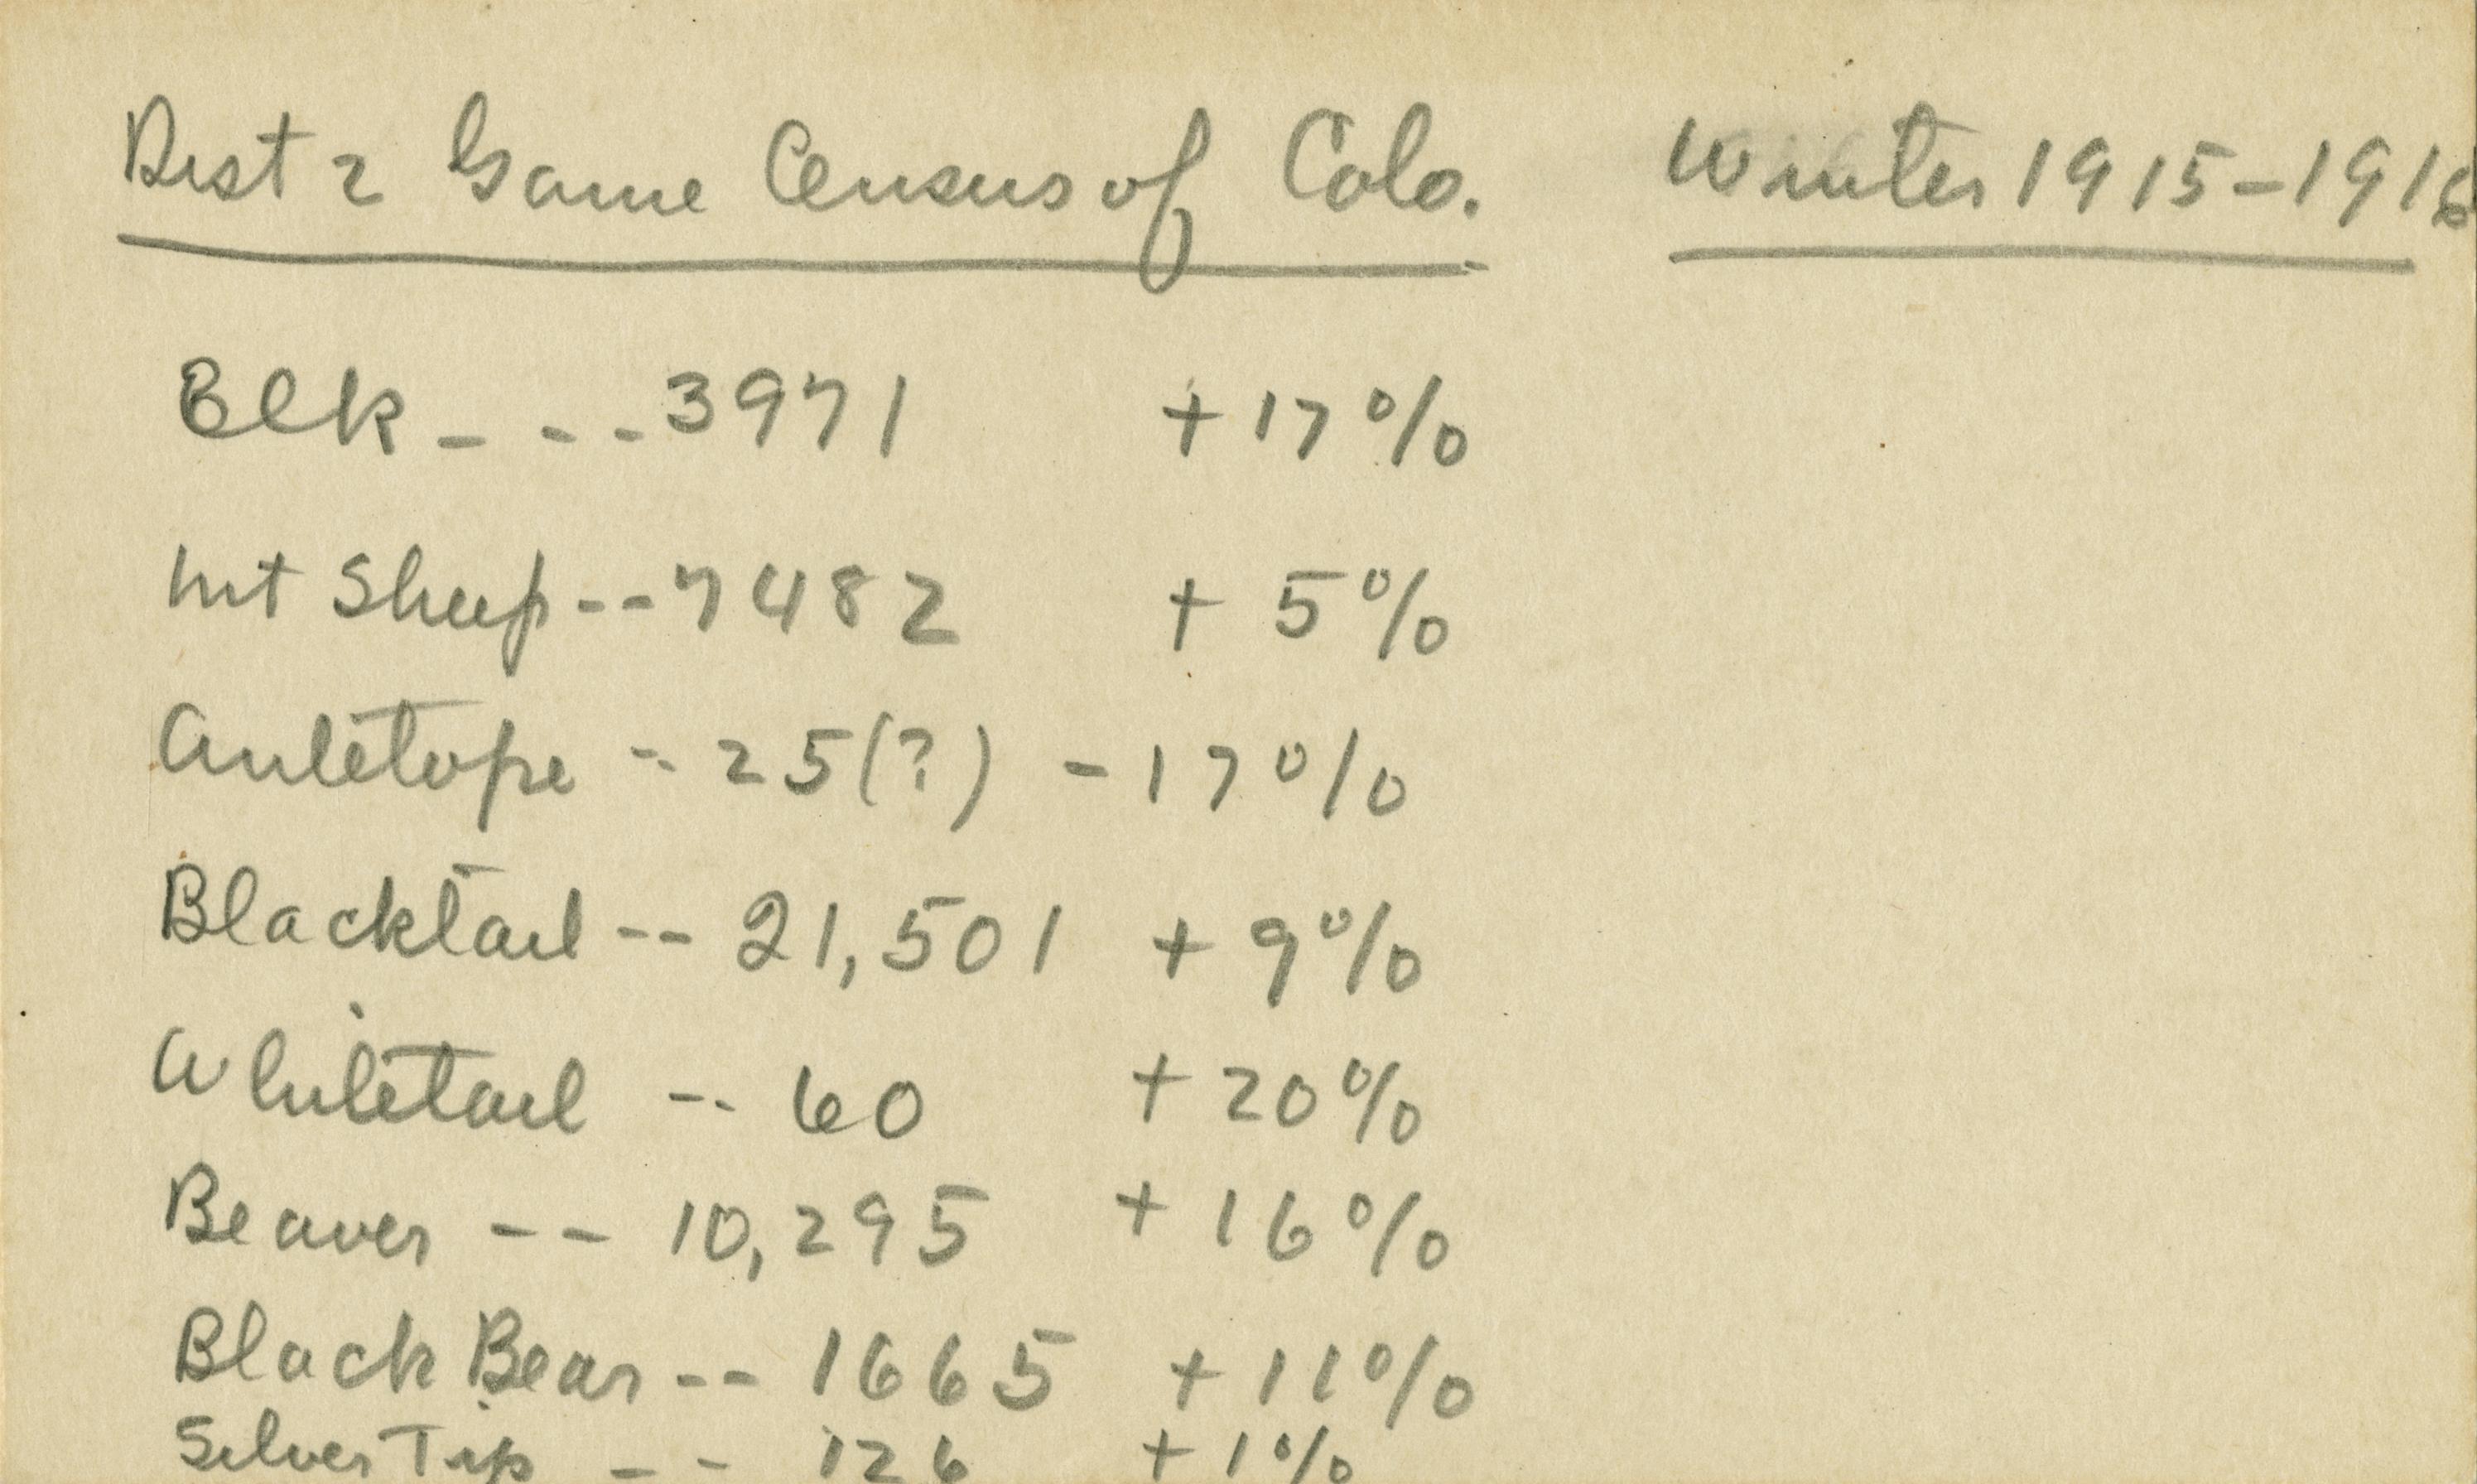 Dist 2 Game Census of Colo. Winter 1915-1916
Elk - - - 3971 + 17%
Mt Sheep -- 7482 + 5%
Antelope -- 25(?) - 17%
Blacktail -- 21,501 + 9%
Whitetail -- 60 + 20%
Beaver -- 10,295 + 16%
Black Bear -- 1665 + 11%
Silver Tip -- 126 + 1%